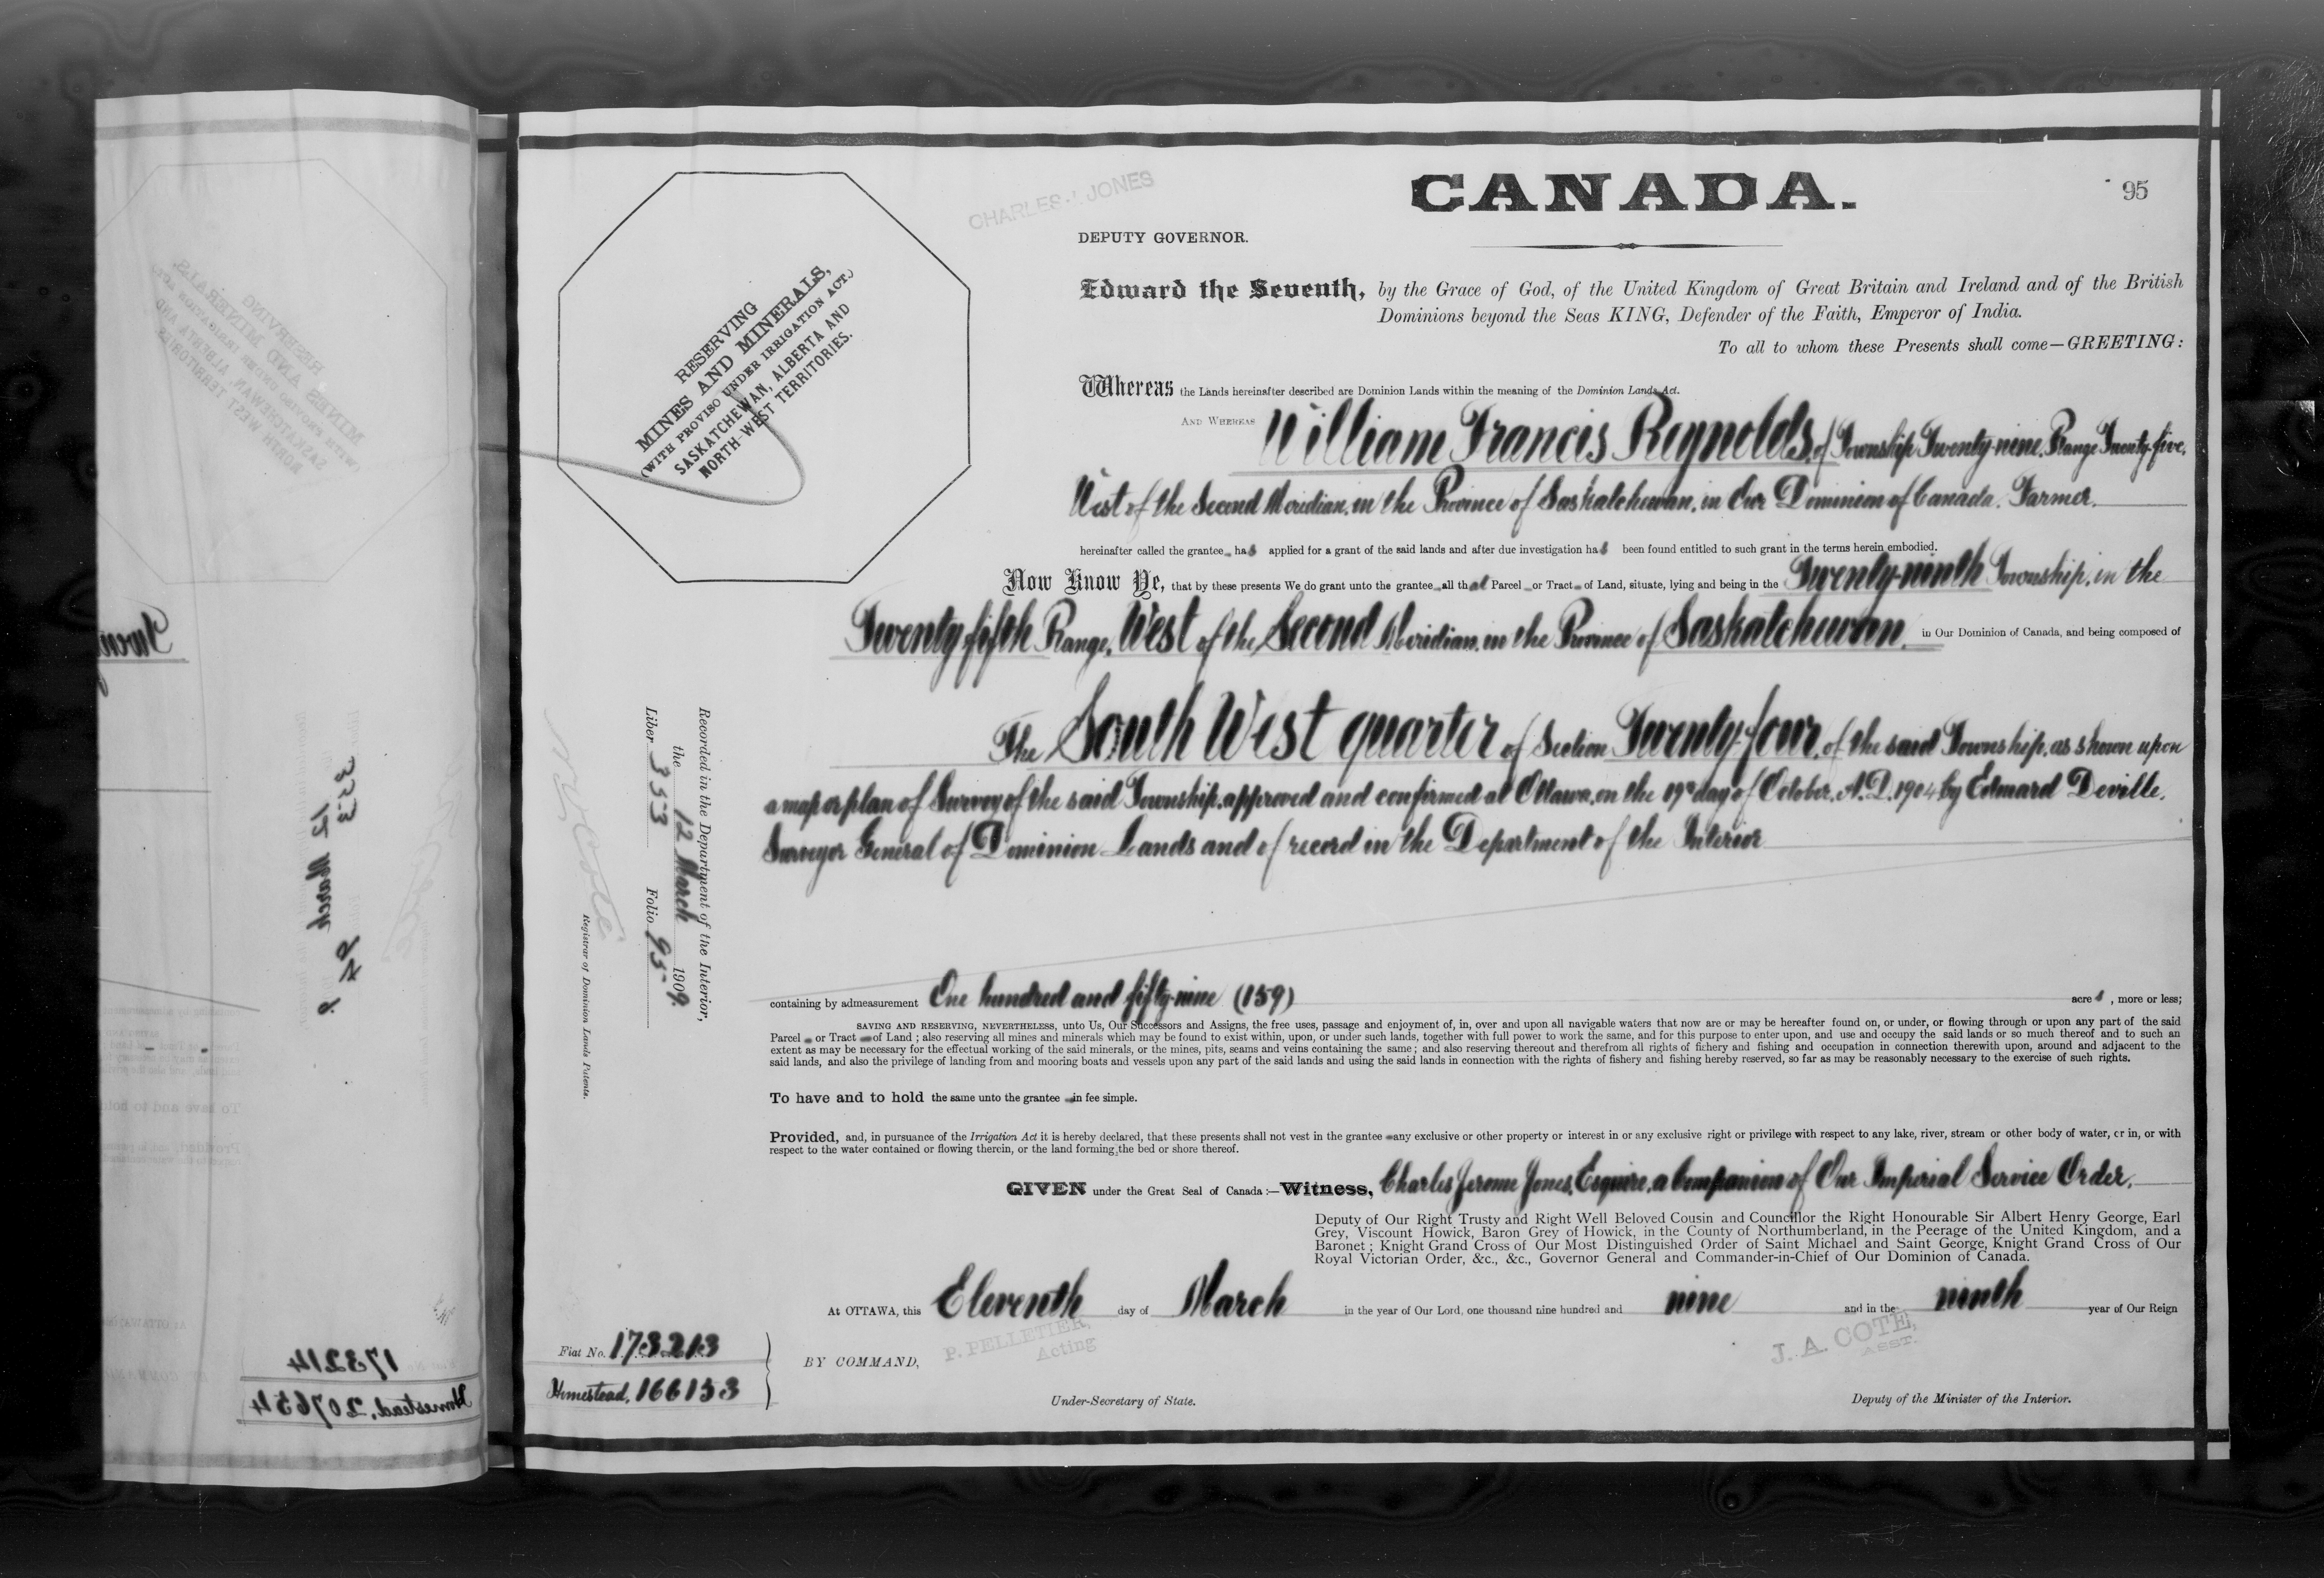 CANADA.
95
CHARLES J. JONES
DEPUTY GOVERNOR.
RESERVING
MINES AND MINERALS,
(WITH PROVISO UNDER IRRIGATION ACT.)
SASKATCHEWAN, ALBERTA AND
NORTH-WEST TERRITORIES.
Edward the Seventh, by the Grace of God, of the United Kingdom of Great Britain and Ireland and of the British
Dominions beyond the Seas KING, Defender of the Faith, Emperor of India.
To all to whom these Presents shall come—GREETING:
Whereas the Lands hereinafter described are Dominion Lands within the meaning of the Dominion Lands Act.
AND WHEREAS William Francis Reynolds, of Township Twenty-nine, Range Twenty-five,
West of the Second Meridian, in the Province of Saskatchewan, in Our Dominion of Canada. Farmer.
hereinafter called the grantee has applied for a grant of the said lands and after due investigation has been found entitled to such grant in the terms herein embodied.
Now Know Ye, that by these presents We do grant unto the grantee all that Parcel or Tract of Land, situate, lying and being in the Twenty-ninth Township, in the
Twenty-fifth Range, West of the Second Meridian, in the Province of Saskatchewan, in Our Dominion of Canada, and being composed of
The South West quarter of Section Twenty-four, of the said Township, as shown upon
a map or plan of Survey of the said Township, approved and confirmed at Ottawa, on the 19th day of October, A.D. 1904 by Edward Deville,
Surveyor General of Dominion Lands and of record in the Department of the Interior
Recorded in the Department of the Interior,
the 12 March 1909.
Liber 353 Folio 95
N. O. Coté
Registrar of Dominion Lands Patents.
containing by admeasurement One hundred and fifty-nine (159) acres, more or less;
SAVING AND RESERVING, NEVERTHELESS, unto Us, Our Successors and Assigns, the free uses, passage and enjoyment of, in, over and upon all navigable waters that now are or may be hereafter found on, or under, or flowing through or upon any part of the said
Parcel or Tract of Land; also reserving all mines and minerals which may be found to exist within, upon, or under such lands, together with full power to work the same, and for this purpose to enter upon, and use and occupy the said lands or so much thereof and to such an
extent as may be necessary for the effectual working of the said minerals, or the mines, pits, seams and veins containing the same; and also reserving thereout and therefrom all rights of fishery and fishing and occupation in connection therewith upon, around and adjacent to the
said lands, and also the privilege of landing from and mooring boats and vessels upon any part of the said lands and using the said lands in connection with the rights of fishery and fishing hereby reserved, so far as may be reasonably necessary to the exercise of such rights.
To have and to hold the same unto the grantee in fee simple.
Provided, and, in pursuance of the Irrigation Act it is hereby declared, that these presents shall not vest in the grantee any exclusive or other property or interest in or any exclusive right or privilege with respect to any lake, river, stream or other body of water, or in, or with
respect to the water contained or flowing therein, or the land forming the bed or shore thereof.
GIVEN under the Great Seal of Canada:—Witness, Charles Jerome Jones, Esquire, a Companion of Our Imperial Service Order,
Deputy of Our Right Trusty and Right Well Beloved Cousin and Councillor the Right Honourable Sir Albert Henry George, Earl
Grey, Viscount Howick, Baron Grey of Howick, in the County of Northumberland, in the Peerage of the United Kingdom, and a
Baronet; Knight Grand Cross of Our Most Distinguished Order of Saint Michael and Saint George, Knight Grand Cross of Our
Royal Victorian Order, &c., &c., Governor General and Commander-in-Chief of Our Dominion of Canada.
At OTTAWA, this Eleventh day of March in the year of Our Lord, one thousand nine hundred and nine and in the ninth year of Our Reign
Fiat No. 173213
Homestead, 166153
BY COMMAND,
P. PELLETIER,
Acting
Under-Secretary of State.
J. A. COTE,
ASST.
Deputy of the Minister of the Interior.
353
12 March
173214
Homestead, 207654